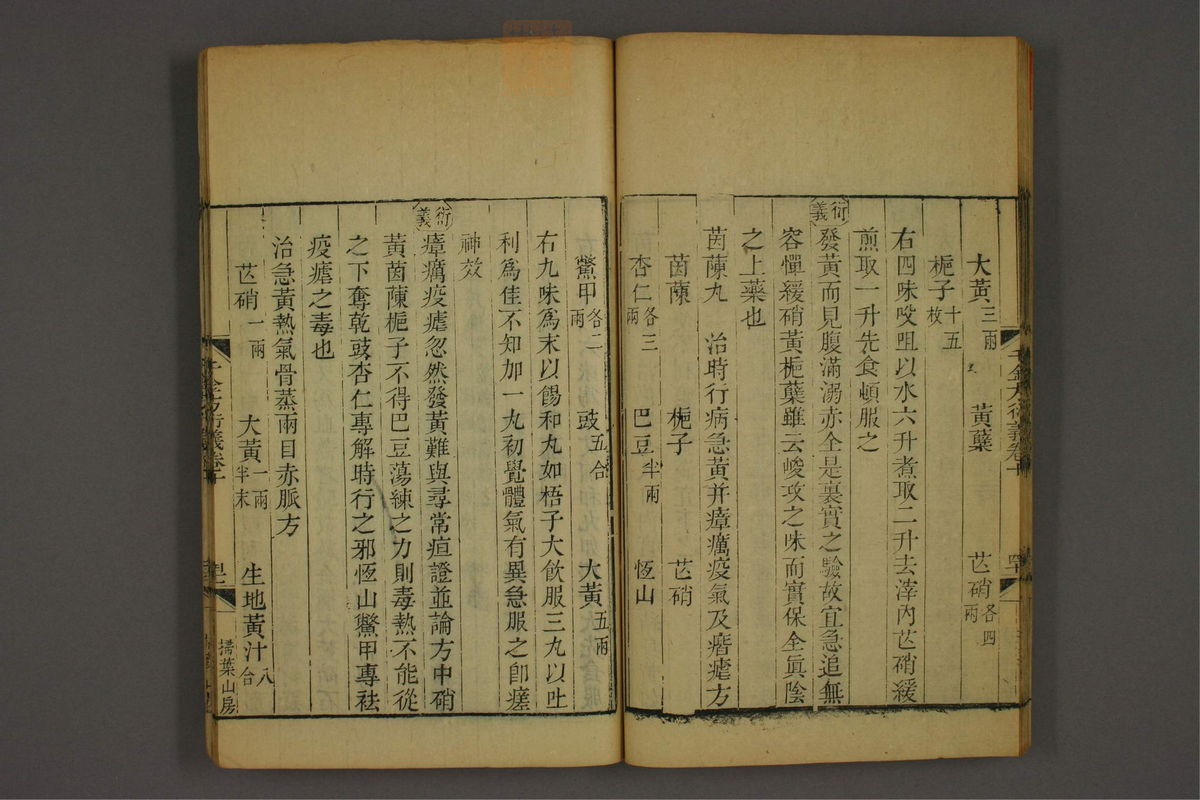 大黃三兩 黃蘗 芒硝各四兩
梔子十五枚
右四味㕮咀以水六升煮取二升去滓內芒硝緩
煎取一升先食頓服之
衍義
發黃而見腹滿溺赤全是裏實之驗故宜急追無
容憚緩硝黃梔蘗雖云峻攻之味而實保全眞陰
之上藥也
茵蔯丸 治時行病急黃并瘴癘疫氣及痎瘧方
茵蔯 梔子 芒硝
杏仁各三兩 巴豆半兩 恆山
鱉甲各二兩 豉五合 大黃五兩
右九味爲末以餳和丸如梧子大飲服三丸以吐
利爲佳不知加一丸初覺體氣有異急服之卽瘥
神效
衍義
瘴癘疫瘧忽然發黃難與尋常疸證並論方中硝
黃茵蔯梔子不得巴豆蕩練之力則毒熱不能從
之下奪乾豉杏仁專解時行之邪恆山鱉甲專祛
疫瘧之毒也
治急黃熱氣骨蒸兩目赤脈方
芒硝一兩 大黃一兩半末 生地黃汁八合
千金方衍義卷十
掃葉山房